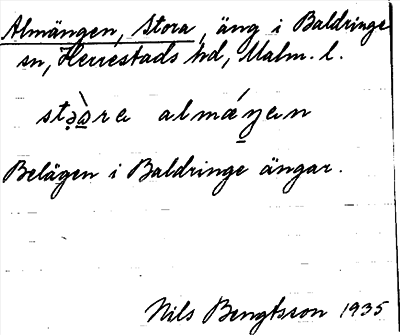 Almängen, Stora, äng i Baldringe
sn, Herrestads hd, Malm. l.
stə̀ɑ̀re almǽŋɑn
Belägen i Baldringe ängar.
Nils Bengtsson 1935